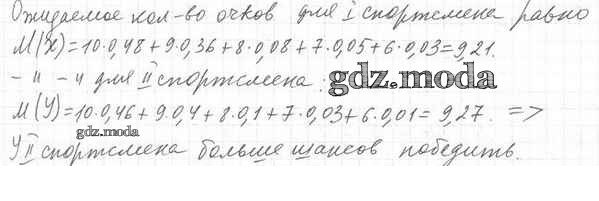 Ожидаемое кол-во очков для I спортсмена равно
M(X)=10·0,48+9·0,36+8·0,08+7·0,05+6·0,03=9,21.
- " - " для II спортсмена:
gdz.moda
M(Y)=10·0,46+9·0,4+8·0,1+7·0,03+6·0,01=9,27. =>
gdz.moda
У II спортсмена больше шансов победить.